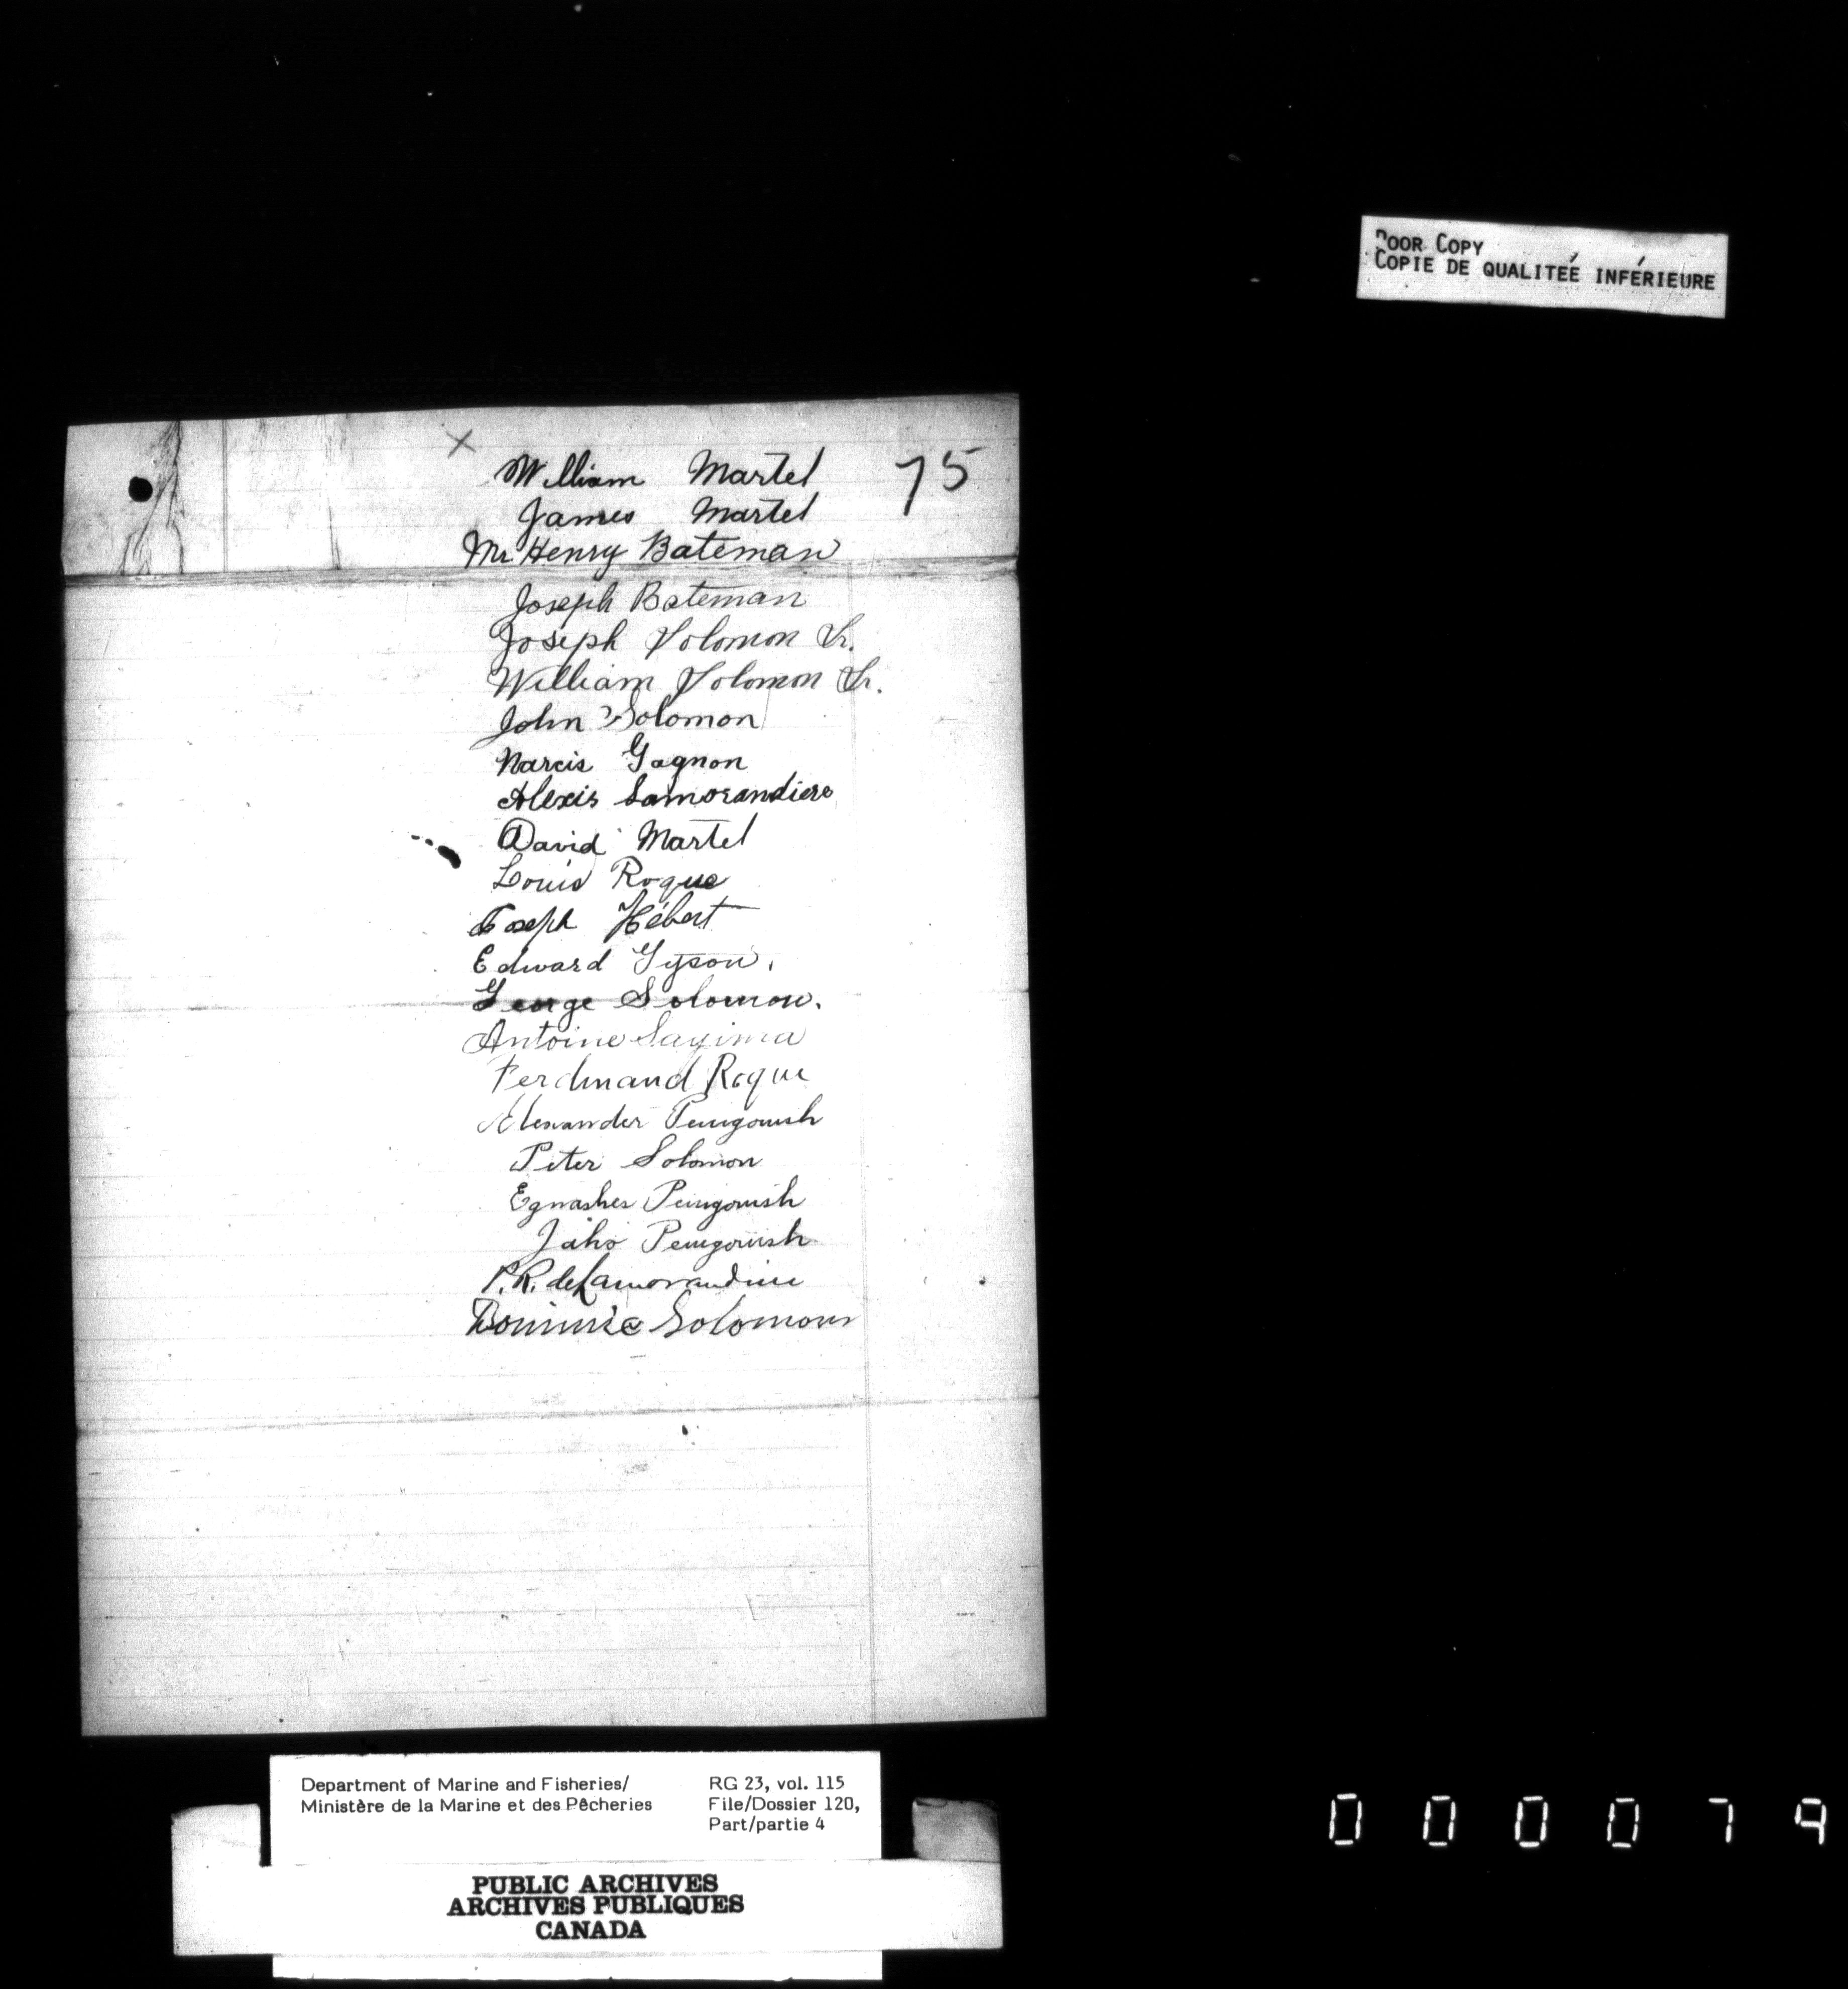 POOR COPY
COPIE DE QUALITEÉ INFÉRIEURE
X
75
William Martel
James Martel
Mr. Henry Bateman
Joseph Bateman
Joseph Solomon Sr.
William Solomon Sr.
John Solomon
Narcis Gagnon
Alexis Lamorandiere
David Martel
Louis Roque
Joseph Hébert
Edward Tyson.
George Solomon.
Antoine
Ferdinand Roque
Alexander
Peter Solomon
P.R. deLamorandiere
Dominic Solomon
Department of Marine and Fisheries/
Ministère de la Marine et des Pêcheries
RG 23, vol. 115
File/Dossier 120,
Part/partie 4
PUBLIC ARCHIVES
ARCHIVES PUBLIQUES
CANADA
000079